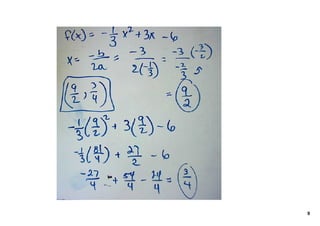 f(x) = -1/3 x² + 3x - 6
x = -b/2a = -3/2(-1/3) = -3/(-2/3) (-3/2)
(9/2, 3/4) = 9/2
-1/3(9/2)² + 3(9/2) - 6
-1/3(81/4) + 27/2 - 6
-27/4 + 54/4 - 24/4 = 3/4
8